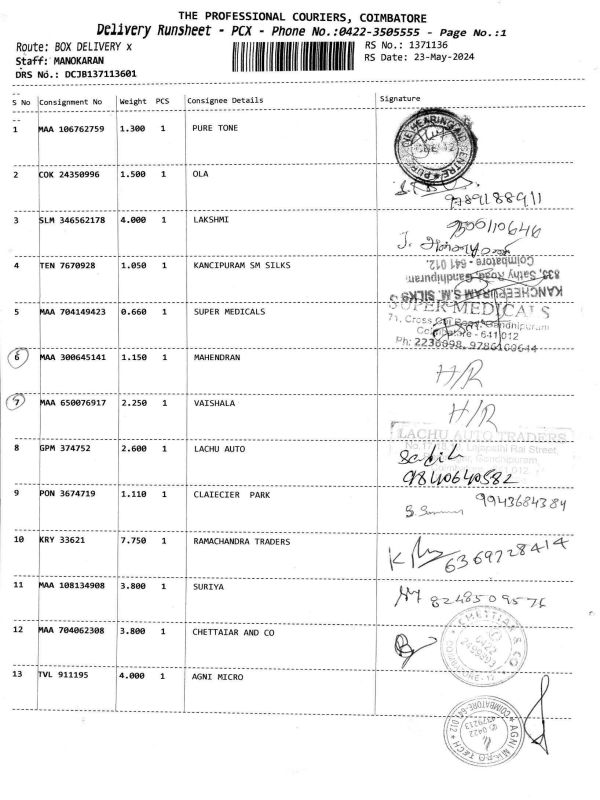 THE PROFESSIONAL COURIERS, COIMBATORE
Delivery Runsheet - PCX - Phone No.:0422-3505555 - Page No.:1
Route: BOX DELIVERY x
RS No.: 1371136
Staff: MANOKARAN
RS Date: 23-May-2024
DRS No.: DCJB137113601
S No Consignment No Weight PCS Consignee Details Signature
1 MAA 106762759 1.300 1 PURE TONE
2 COK 24350996 1.500 1 OLA
9789188911
3 SLM 346562178 4.000 1 LAKSHMI
9500110646
4 TEN 7670928 1.050 1 KANCIPURAM SM SILKS
KANCHEEPURAM S.M. SILKS
833, Sathy Road, Gandhipuram,
Coimbatore - 641 012.
5 MAA 704149423 0.660 1 SUPER MEDICALS
SUPER MEDICALS
71, Cross Cut Road, Gandhipuram
Coimbatore - 641 012
Ph: 2236098, 9786100644
6 MAA 300645141 1.150 1 MAHENDRAN
H/R
7 MAA 650076917 2.250 1 VAISHALA
H/R
8 GPM 374752 2.600 1 LACHU AUTO
LACHU AUTO TRADERS
9840640582
9 PON 3674719 1.110 1 CLAIECIER PARK
9943684384
10 KRY 33621 7.750 1 RAMACHANDRA TRADERS
6369728414
11 MAA 108134908 3.800 1 SURIYA
8248509576
12 MAA 704062308 3.800 1 CHETTAIAR AND CO
CHETTIAR & CO
13 TVL 911195 4.000 1 AGNI MICRO